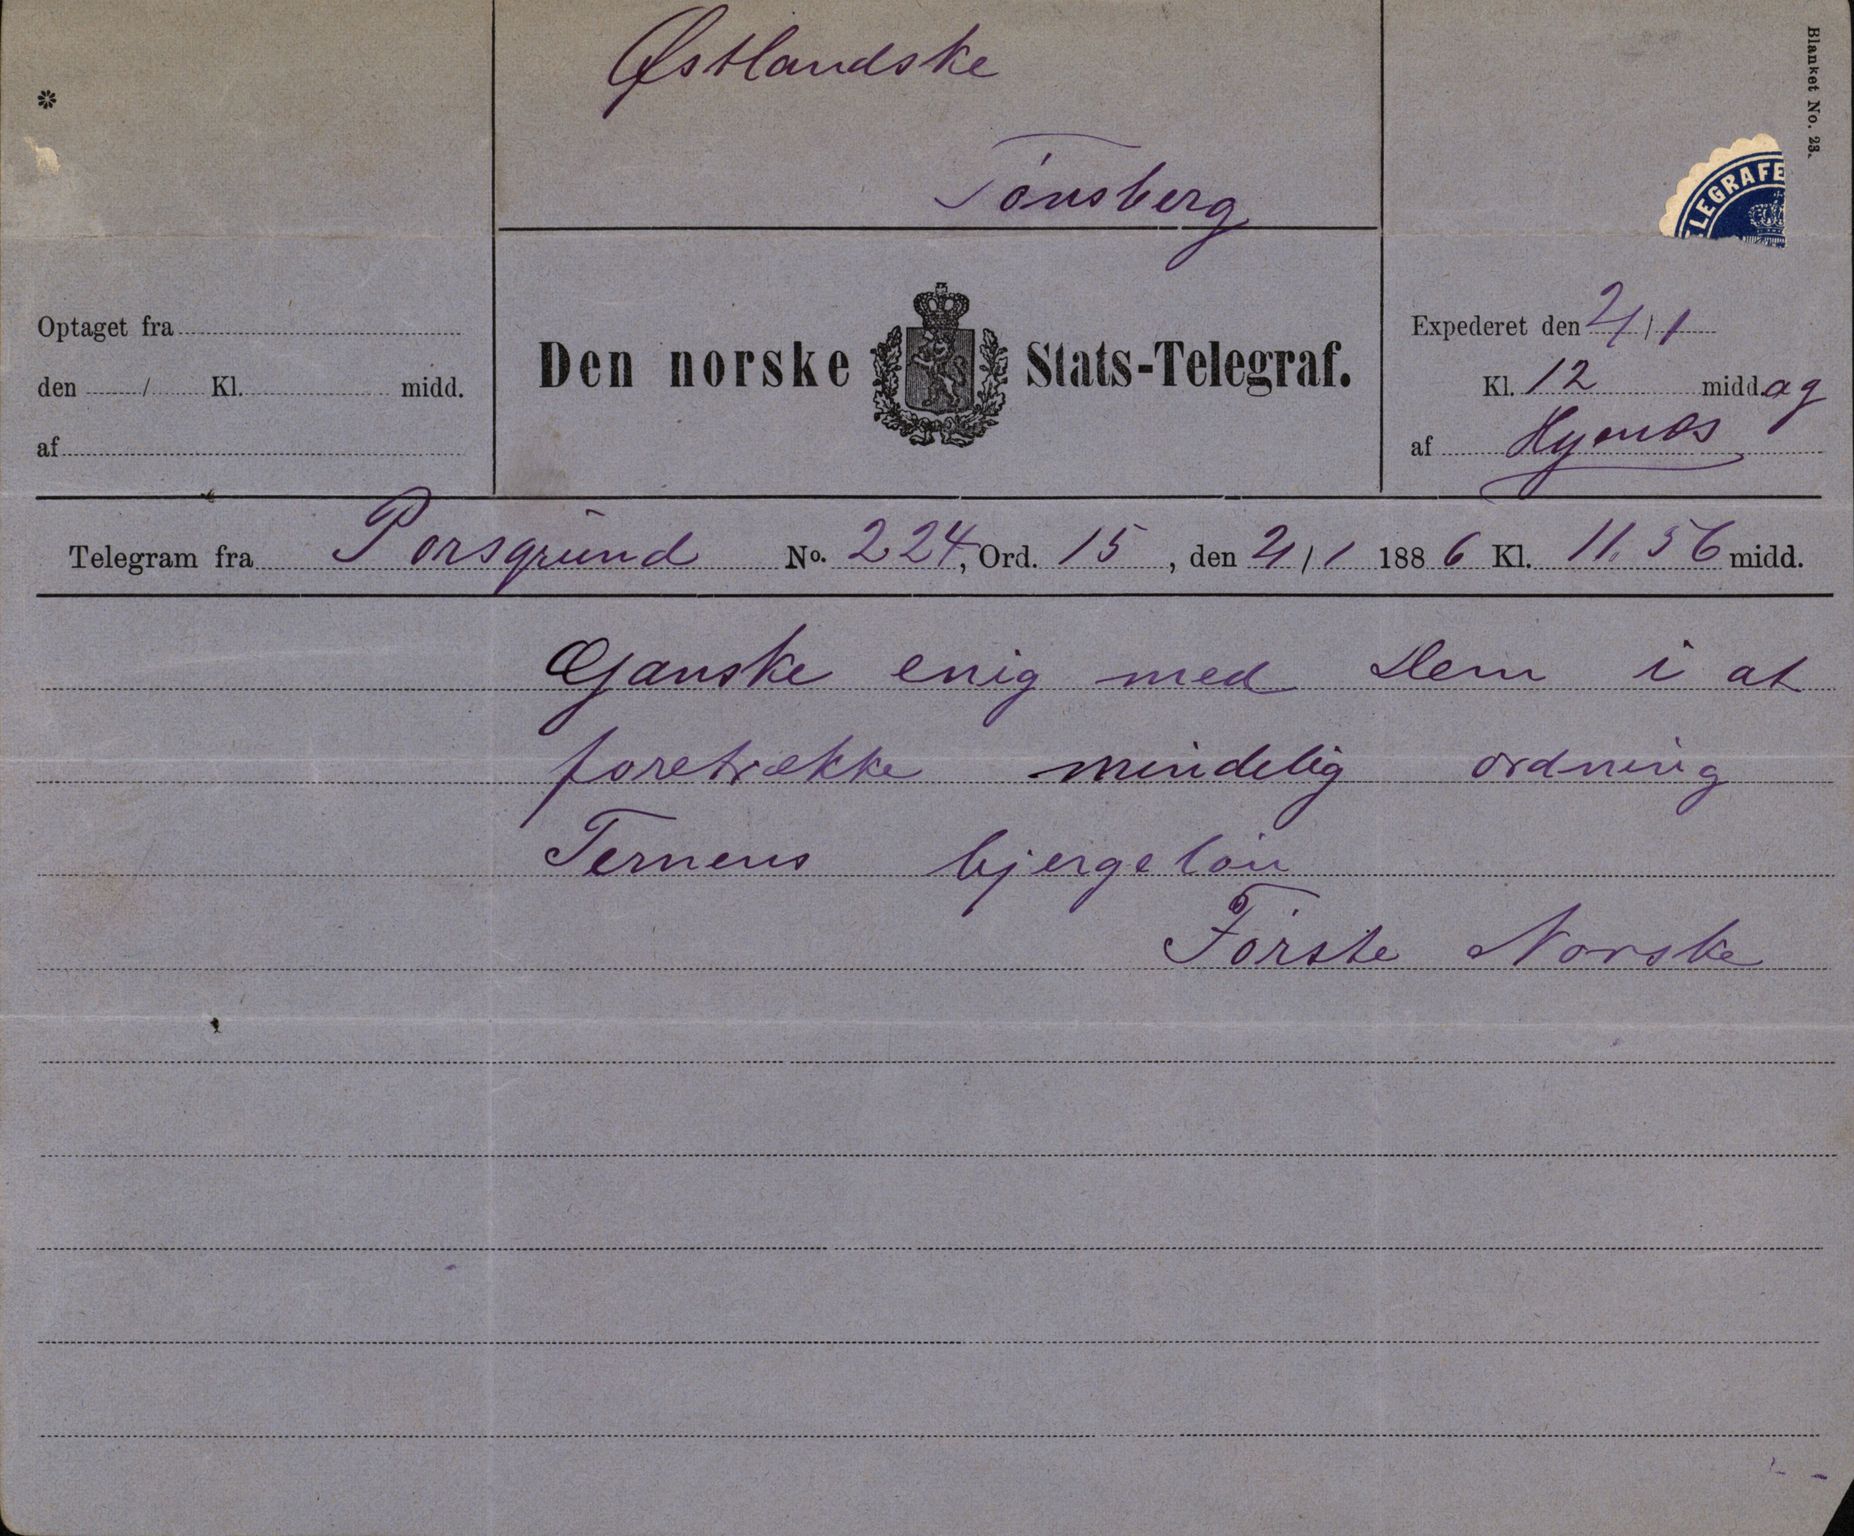 Blanket No. 23.
*
Østlandske
Tønsberg
TELEGRAFE
Optaget fra
den / Kl. midd.
af
Den norske Stats-Telegraf.
Expederet den 21/1
Kl. 12 midd.ag
af
Telegram fra Porsgrund No. 224, Ord. 15, den 21/1 1886 Kl. 11.56 midd.
Ganske enig med Dem i at
foretrække mindelig ordning
Ternens bjergeløn
Første Norske